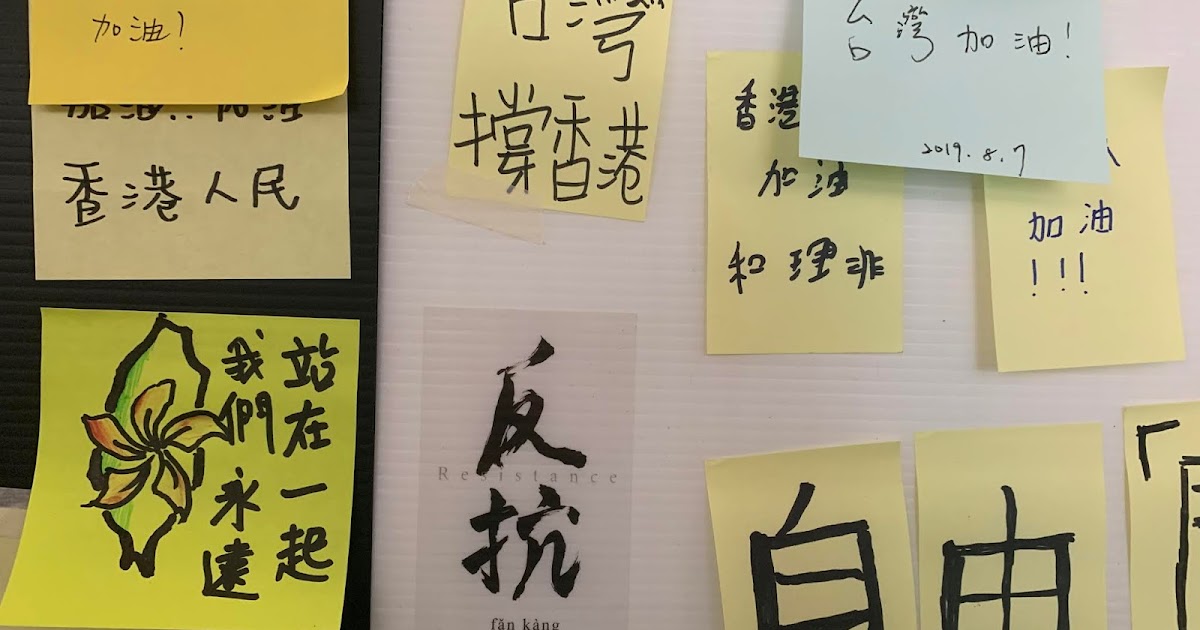 加油!
香港人民
台灣
撐香港
香港
加油
和理非
台灣加油!
2019.8.7
加油
!!!
我們永遠
站在一起
反
Resistance
抗
făn kàng
自
由
「